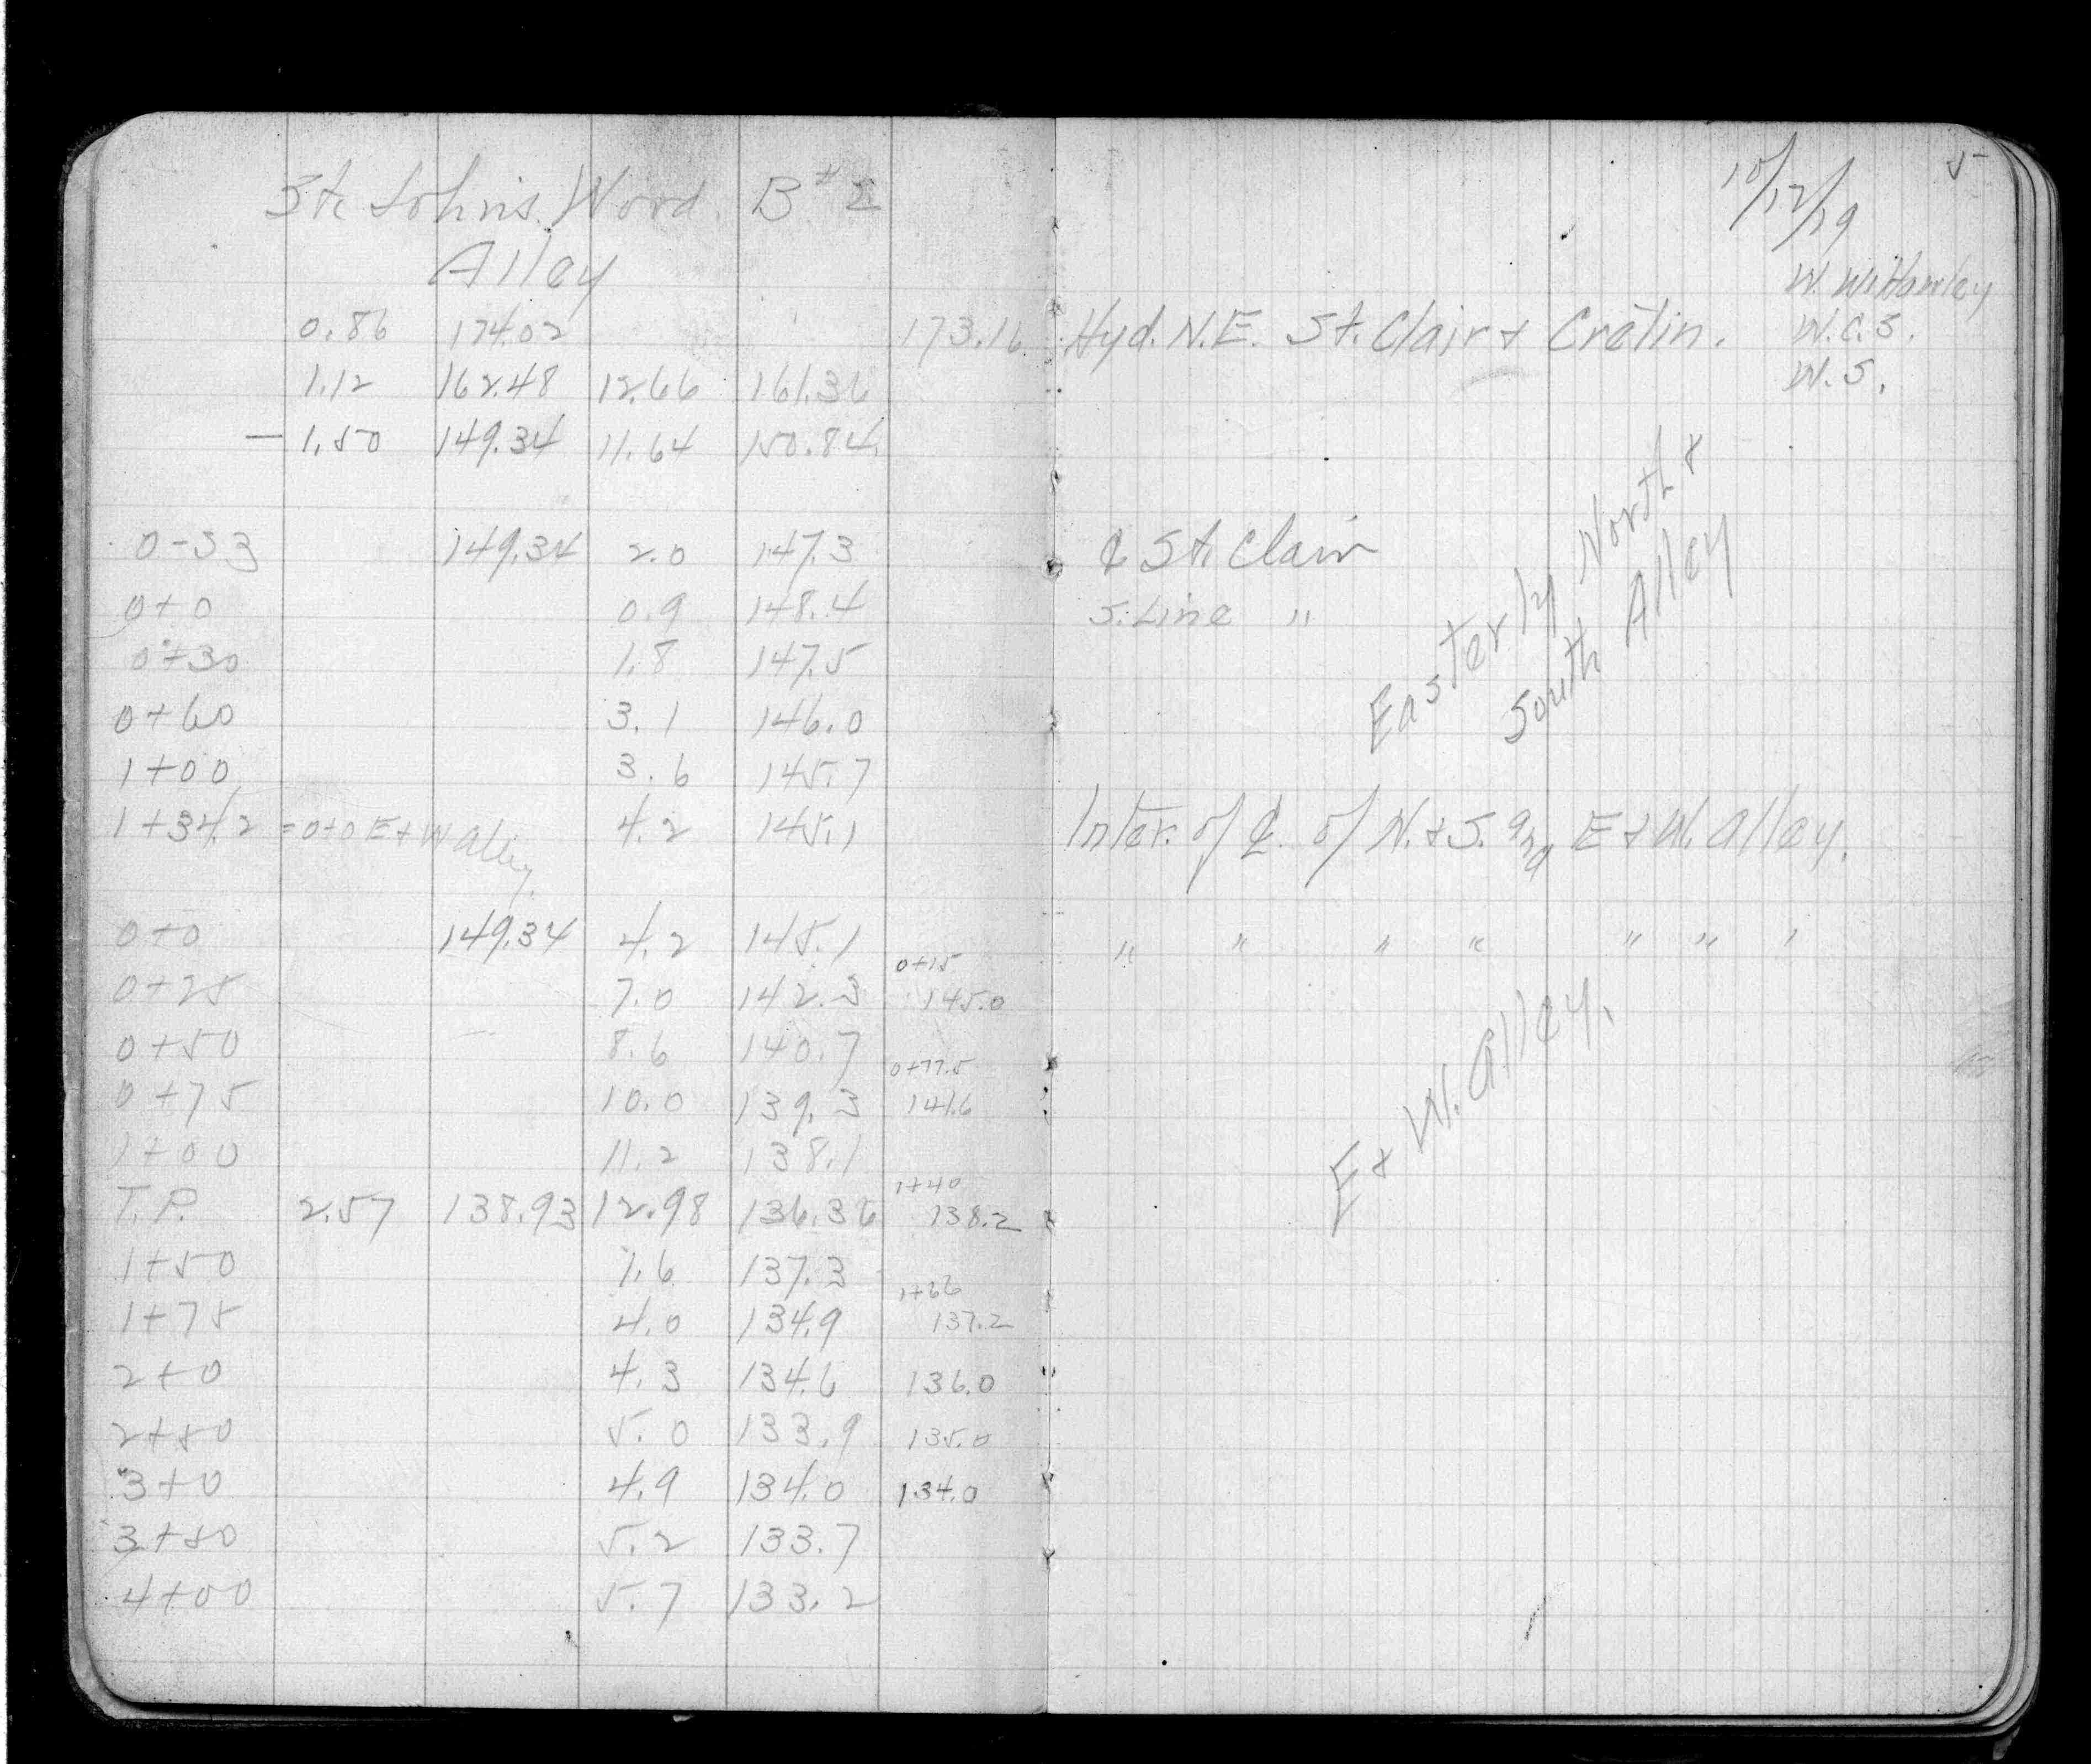 St. Johns Wood B# 2
Alley
0.86 174.02 173.16
1.12 162.48 12.66 161.36
- 1.50 149.34 11.64 150.84
0-53 149.34 2.0 147.3
0+0 0.9 148.4
0+30 1.8 147.5
0+60 3.1 146.0
1+00 3.6 145.7
1+34.2 =0+0 E+W Alley. 4.2 145.1
0+0 149.34 4.2 145.1
0+15
0+25 7.0 142.3 145.0
0+50 8.6 140.7
0+77.5
0+75 10.0 139.3 141.6
1+00 11.2 138.1
1+40
T.P. 2.57 138.93 12.98 136.36 138.2
1+50 1.6 137.3
1+66
1+75 4.0 134.9 137.2
2+0 4.3 134.6 136.0
2+50 5.0 133.9 135.0
3+0 4.9 134.0 134.0
3+50 5.2 133.7
4+00 5.7 133.2
5
10/12/19
W.C.S.
W.S.
Hyd. N.E. St. Clair + Cretin.
℄ St. Clair
S. Line "
Easterly North &
South Alley
Inter. of ℄ of N. & S. and E & W. Alley.
" " " " " " "
E & W. Alley.